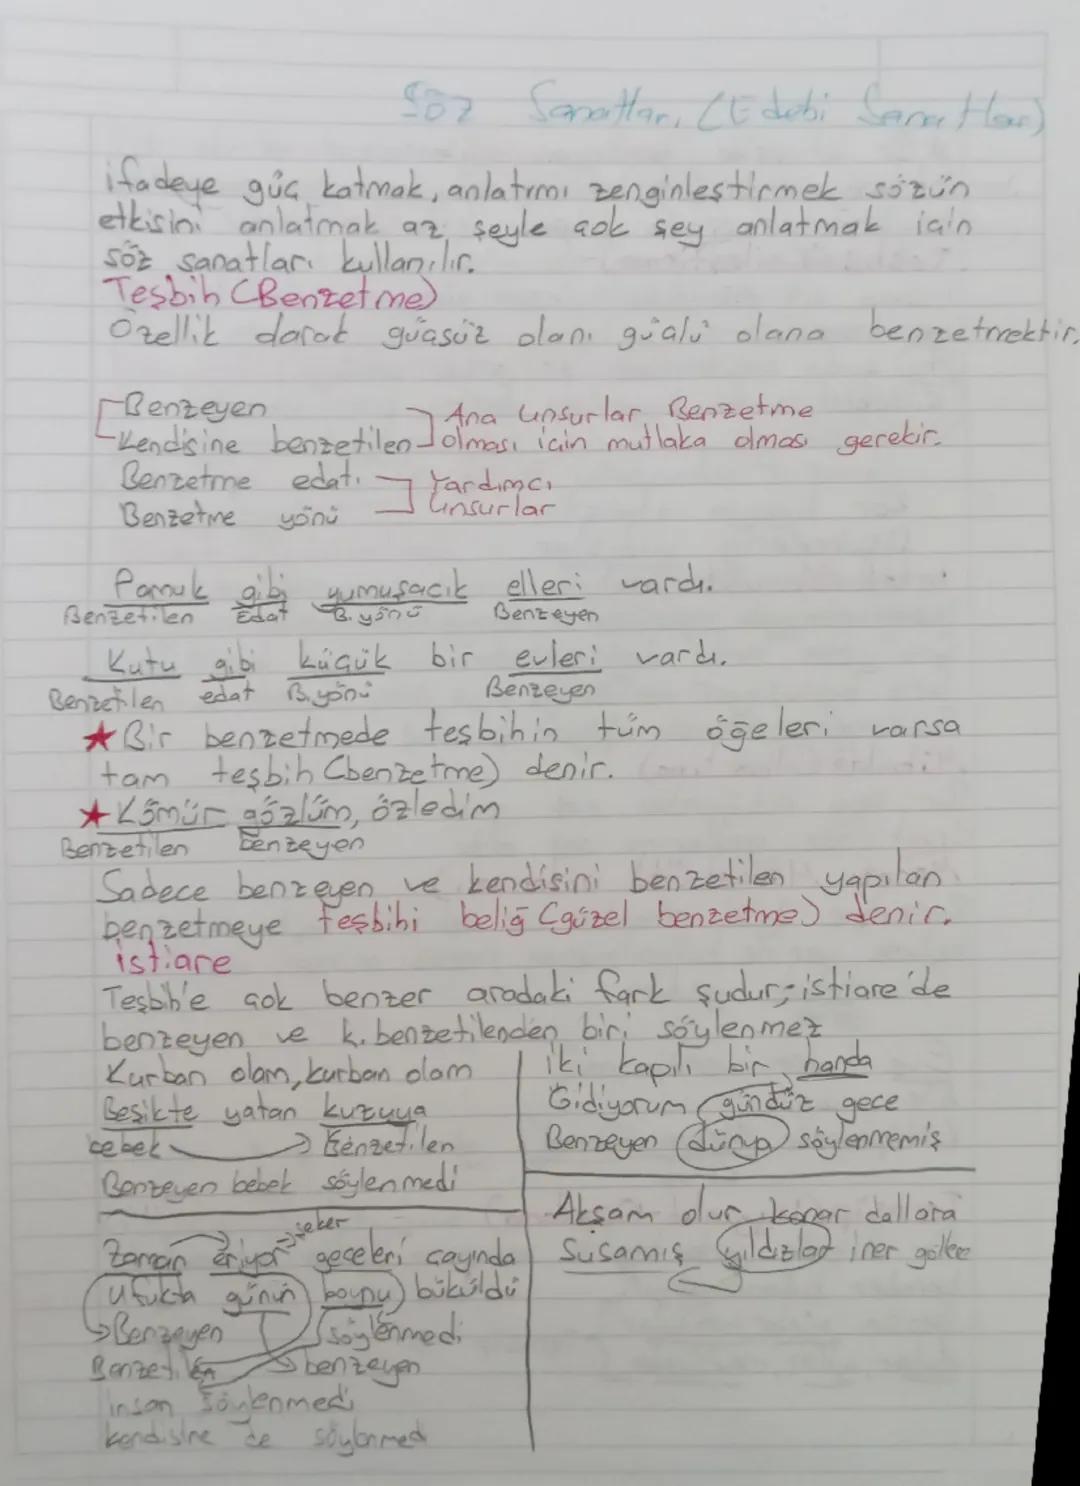 Söz Sanatları (Edebi Sanatlar)
ifadeye güç katmak, anlatımı zenginleştirmek sözün
etkisini anlatmak az şeyle çok şey anlatmak için
söz sanatları kullanılır.
Teşbih (Benzetme)
Özellik darak güçsüz olanı güçlü olana benzetmektir.
Benzeyen
Kendisine benzetilen
Ana Unsurlar Benzetme
olması için mutlaka olması gerekir.
Benzetme edatı
Benzetme yönü
Yardımcı
Unsurlar
Pamuk gibi yumuşacık elleri vardı.
Benzetilen Edat B. yönü Benzeyen
Kutu gibi küçük bir evleri vardı.
Benzetilen edat B. yönü Benzeyen
★ Bir benzetmede teşbihin tüm öğeleri varsa
tam teşbih (benzetme) denir.
★ Kömür gözlüm, özledim
Benzetilen benzeyen
Sadece benzeyen ve kendisini benzetilen yapılan
benzetmeye teşbihi beliğ (güzel benzetme) denir.
istiare
Teşbih'e çok benzer aradaki fark şudur; istiare'de
benzeyen ve k. benzetilenden biri söylenmez
Kurban olam, kurban olam
Beşikte yatan kuzuya
bebek Benzetilen
Benzeyen bebek söylenmedi
iki kapılı bir handa
Gidiyorum gündüz gece
Benzeyen dünya söylenmemiş
şeker
Zaman eriyor geceleri çayında
Ufukta günün boynu büküldü
Benzeyen söylenmedi
Benzetilen benzeyen
insan söylenmedi
kendisine de söylenmedi
Akşam olur konar dallara
Susamış yıldızlar iner göllere